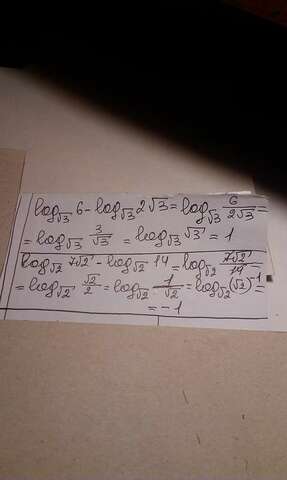 log_√3 6 - log_√3 2√3 = log_√3 6/(2√3) =
= log_√3 3/√3 = log_√3 √3 = 1
log_√2 7√2 - log_√2 14 = log_√2 (7√2)/14 =
= log_√2 √2/2 = log_√2 1/√2 = log_√2 (√2)^-1 =
= -1